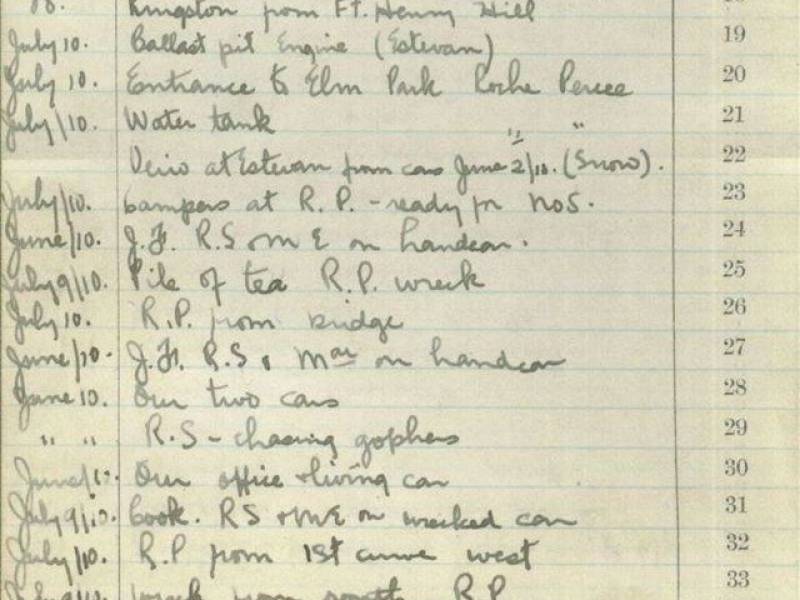 Kingston from Ft. Henry Hill
July 10. Ballast pit Engine (Estevan) 19
July 10. Entrance to Elm Park Roche Percee 20
July/10. Water tank " " 21
View at Estevan from cars June 2/10. (Snow). 22
July/10. Campers at R. P. - ready for No 5. 23
June/10. J.F. R.S + ME on handcar. 24
July 9/10. Pile of tea R.P. wreck 25
July 10. R.P. from bridge 26
June/10. J.F. R.S. on handcar 27
June 10. Our two cars 28
" " R.S - chasing gophers 29
June/10. Our office + living car 30
July 9/10. Cook. RS + ME on wrecked car 31
July/10. R.P from 1st curve west 32
wreck from south R.P. 33